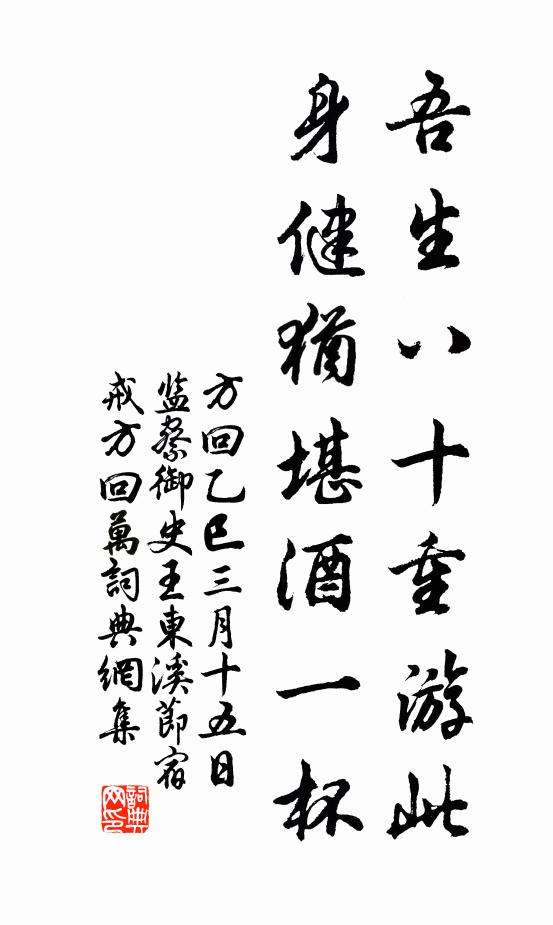 吾生八十重游此
身健犹堪酒一杯
方回乙巳三月十五日
监察御史王東溪節宿
戒方回萬詞典網集
詞典网印